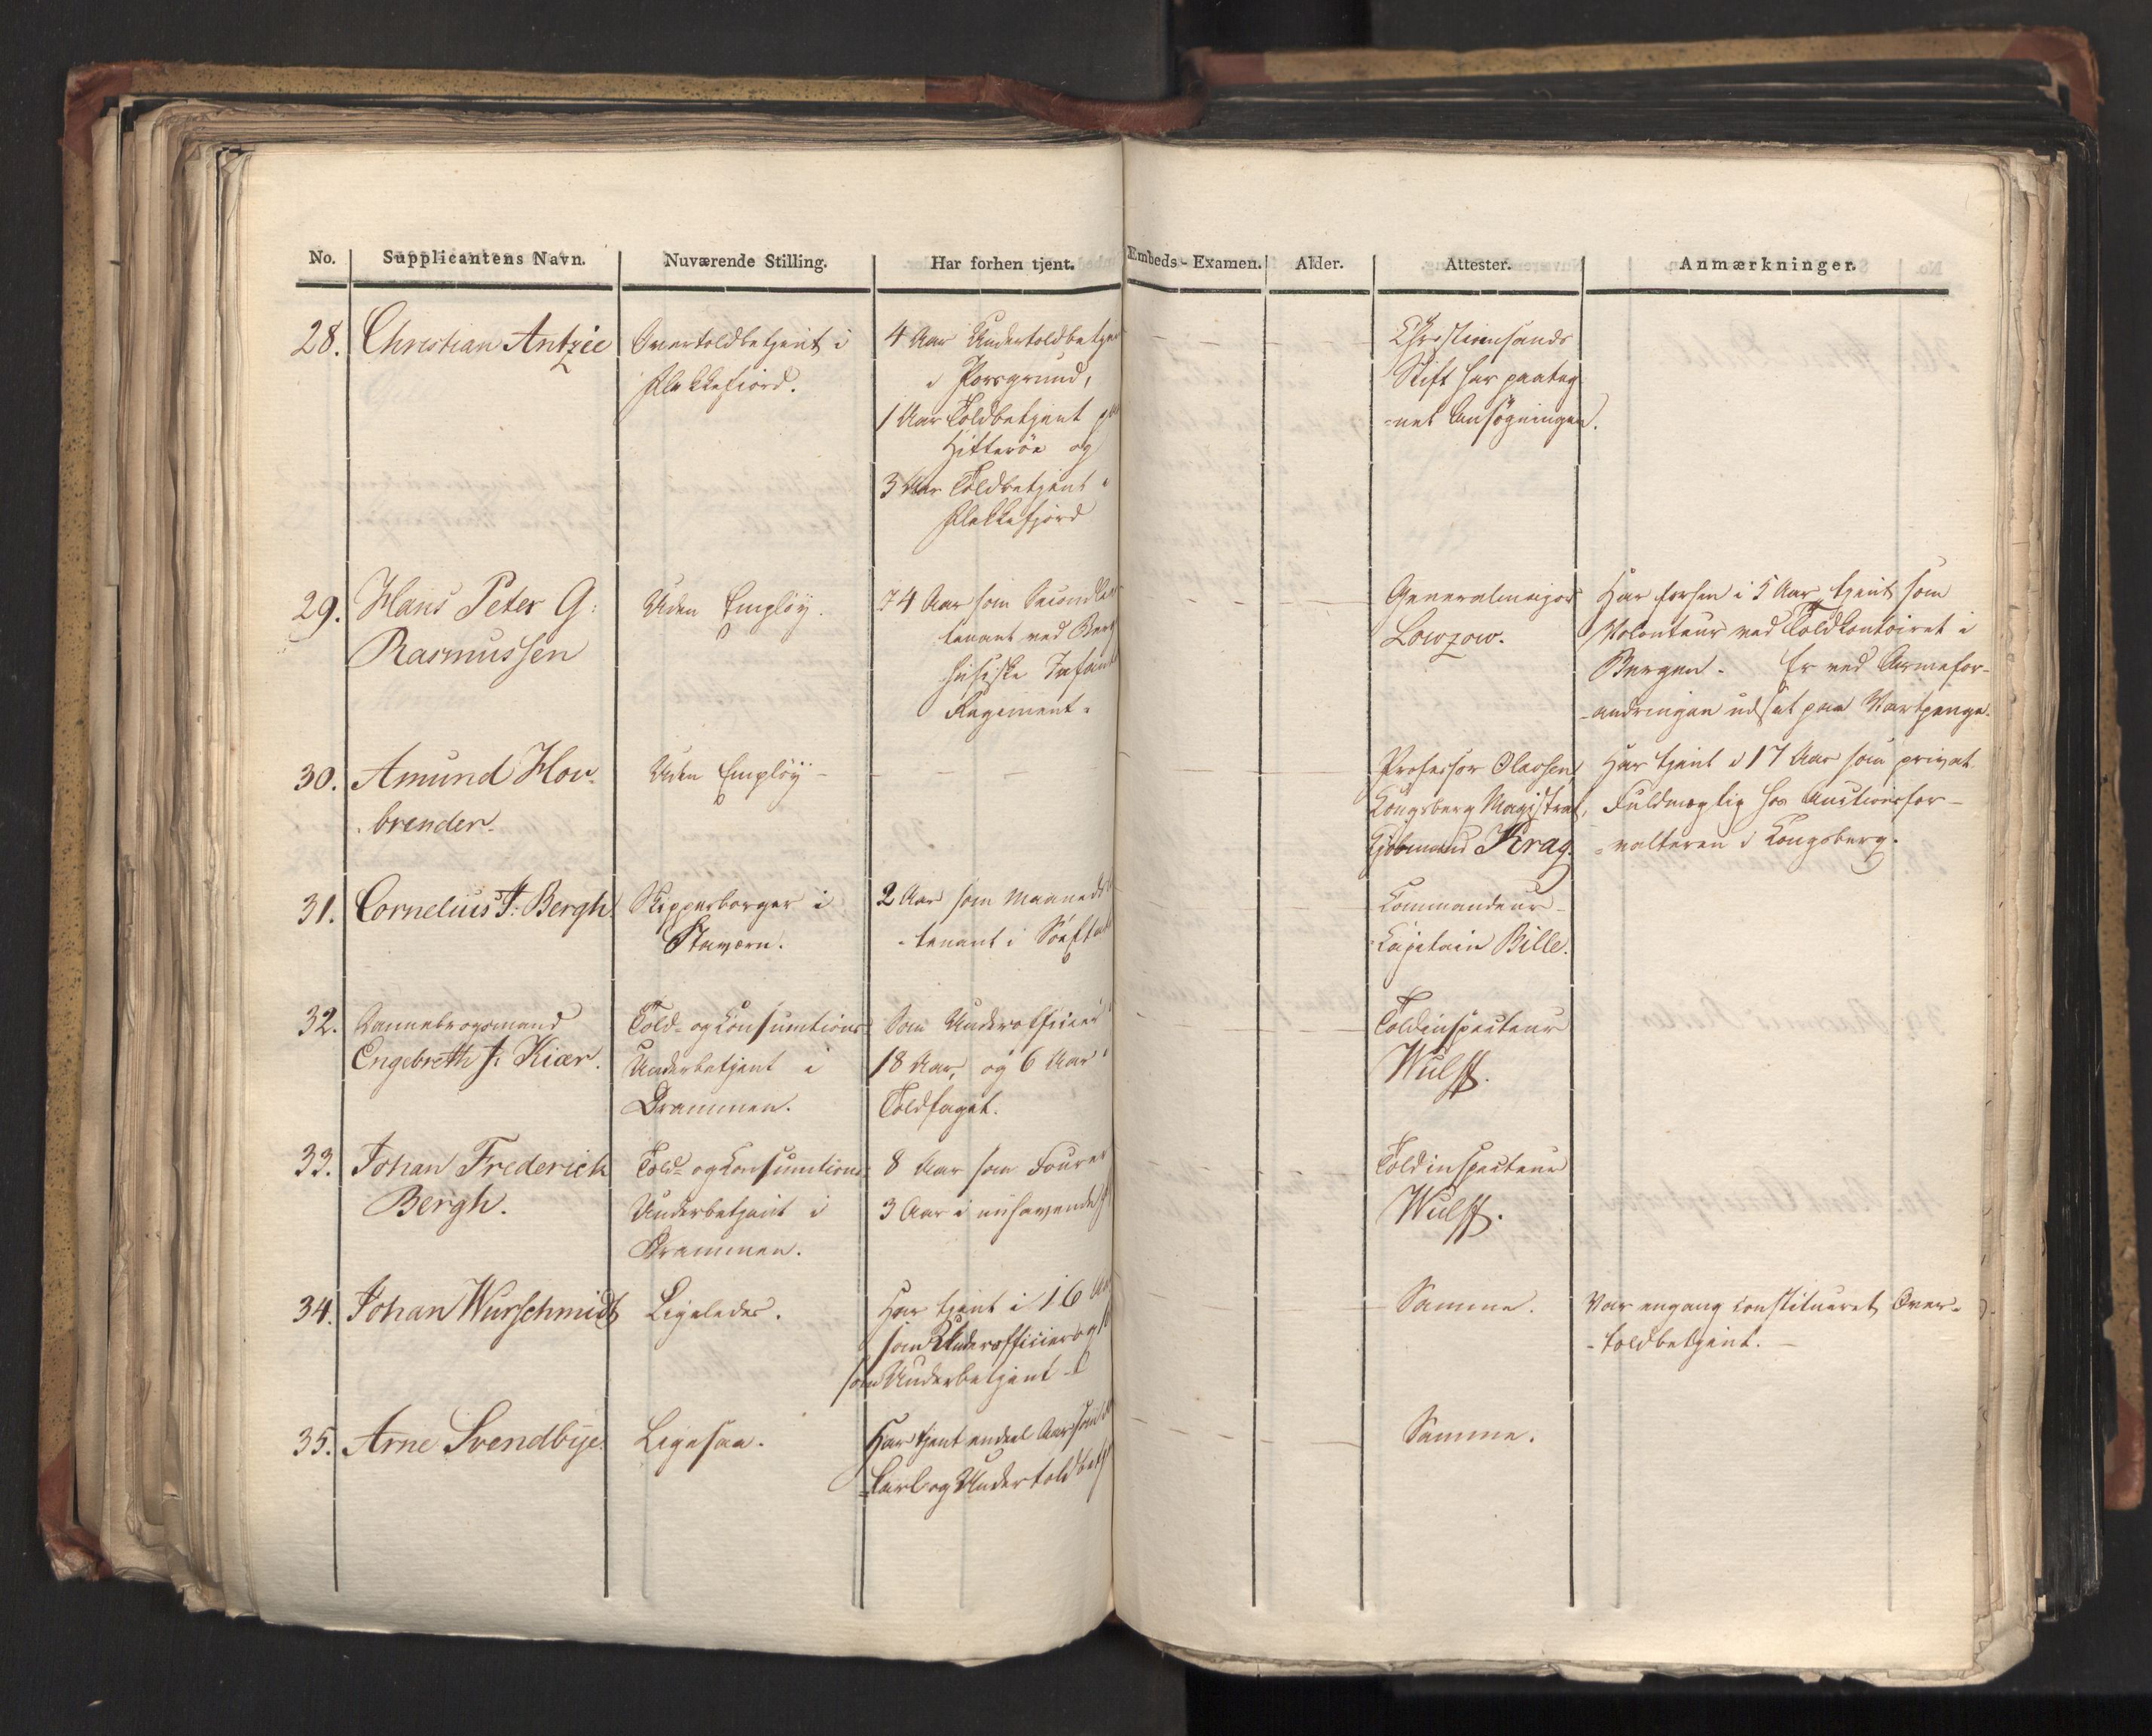 No. Supplicantens Navn. Nuværende Stilling. Har forhen tjent. Embeds-Examen. Alder. Attester. Anmærkninger.
28. Christian Antzée
Overtoldbetjent i
Flekkefiord.
4 Aar Undertoldbetje
i Porsgrund,
1 Aar Toldbetjent paa
Hitteröe og
3 Aar Toldbetjent i
Flekkefjord
Christiansands
Stift har paateg-
-net Ansøgningen.
29. Hans Peter G:
Rasmussen
Uden Employ.
74 Aar som Secondlieu
tenant ved Berg
husiske Infant
Regiment.
Generalmajor
Lowzow.
Har forhen i 5 Aar tjent som
Volonteur ved Toldkontoiret i
Bergen. Er ved Armefor-
-andringen udsat paa Vartpenge.
30. Amund Hov-
brender.
Uden Employ
Professor Olavsen,
Kongsberg Magistrat,
Kjøbmand Krag.
Har tjent i 17 Aar som privat
Fuldmægtig hos Auctionsfor-
-valteren i Kongsberg.
31. Cornelius J: Bergh
Skipperborger i
Staværn.
2 Aar som Maaneds
-tenant i Søeetat
Commandeur-
Capitain Bille.
32. Dannebrogsmand
Engebreth J: Kiær.
Told- og Consumtions
Underbetjent i
Drammen.
Som Underofficier
18 Aar, og 6 Aar i
Toldfaget.
Toldinspecteur
Wulff.
33. Johan Frederich
Bergh.
Told- og Consumtions
Underbetjent i
Drammen.
8 Aar som Fourer
3 Aar i nuhavende
Toldinspecteur
Wulff.
34. Johan Wurschmidt
Ligeledes.
Har tjent i 16 Aar
som Underofficier og
som Underbetjent
Samme.
Var engang constitueret Over-
-toldbetjent.
35. Arne Svendbye.
Ligesaa.
Har tjent endeel Aar som
-karl og Undertoldbetj
Samme.